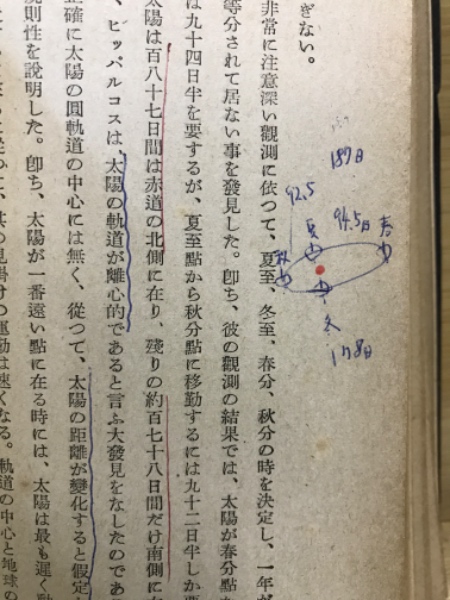 ぎない。
非常に注意深い觀測に依つて、夏至、冬至、春分、秋分の時を決定し、一年が
等分されて居ない事を發見した。卽ち、彼の觀測の結果では、太陽が春分點
は九十四日半を要するが、夏至點から秋分點に移動するには九十二日半しか要
太陽は百八十七日間は赤道の北側に在り、殘りの約百七十八日間だけ南側に
、ヒッパルコスは、太陽の軌道が離心的であると言ふ大發見をなしたのであ
正確に太陽の圓軌道の中心には無く、從つて、太陽の距離が變化すると假定
規則性を說明した。卽ち、太陽が一番遠い點に在る時には、太陽は最も遲く動
其の見掛けの運動は速くなる。軌道の中心と地球の
187日
92.5
94.5日
春
夏
秋
冬
178日